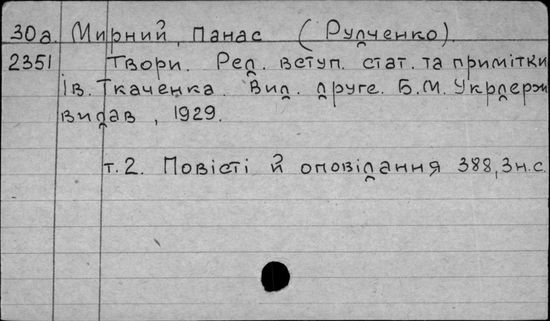 30а. Мирний, Панас (Рудченко).
2351 Твори. Ред. вступ. стат. та примітки
Ів. Ткаченка. Вид. друге. Б.М. Укрдерж
видав, 1929.
т. 2. Повісті й оповідання 388, 3 н. с.